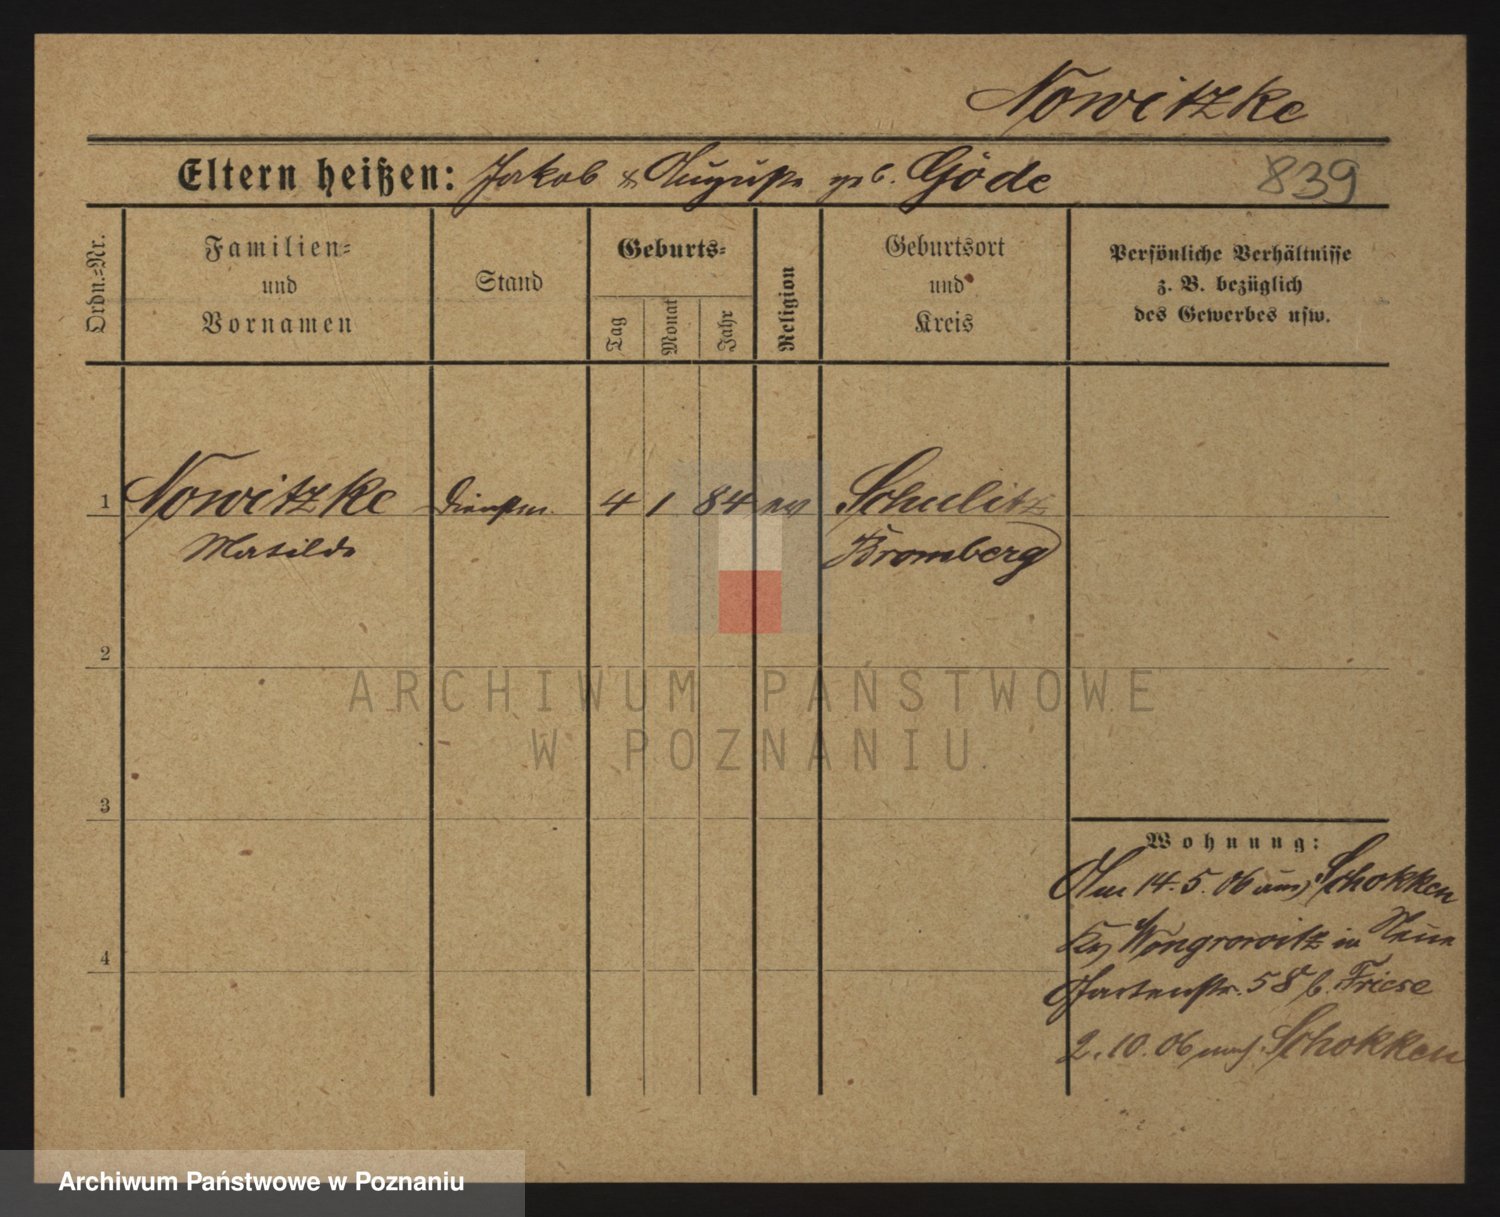 Nowitzke
Eltern heißen: Jakob & Auguste geb. Göde
839
Ordn.=Nr.
Familien=
und
Vornamen
Stand
Geburts=
Tag
Monat
Jahr
Religion
Geburtsort
und
Kreis
Persönliche Verhältnisse
z. B. bezüglich
des Gewerbes usw.
1 Nowitzke Dienstm. 4 1 84 ev Schulitz
Matilde Bromberg
2
ARCHIWUM PAŃSTWOWE
W POZNANIU
3
Wohnung:
Am 14.5.06 aus Schokken
Krs Wongrowitz in Neue
Gartenstr. 58 b. Friese
4
2.10.06 nach Schokken
Archiwum Państwowe w Poznaniu